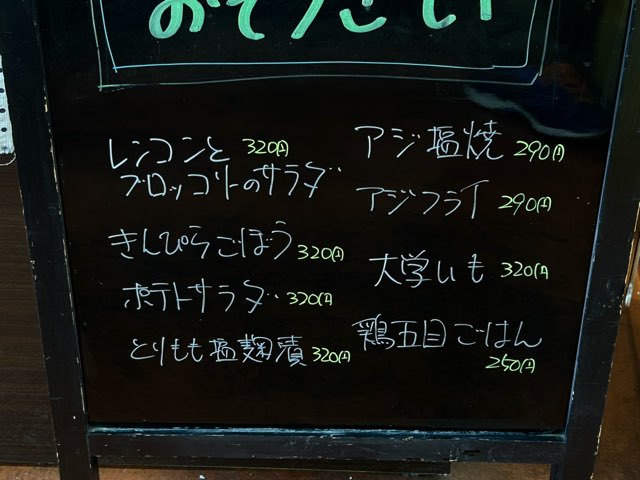 おそうざい
レンコンと 320円
ブロッコリーのサラダ
きんぴらごぼう 320円
ポテトサラダ 320円
とりもも塩麹漬 320円
アジ塩焼 290円
アジフライ 290円
大学いも 320円
鶏五目ごはん
250円